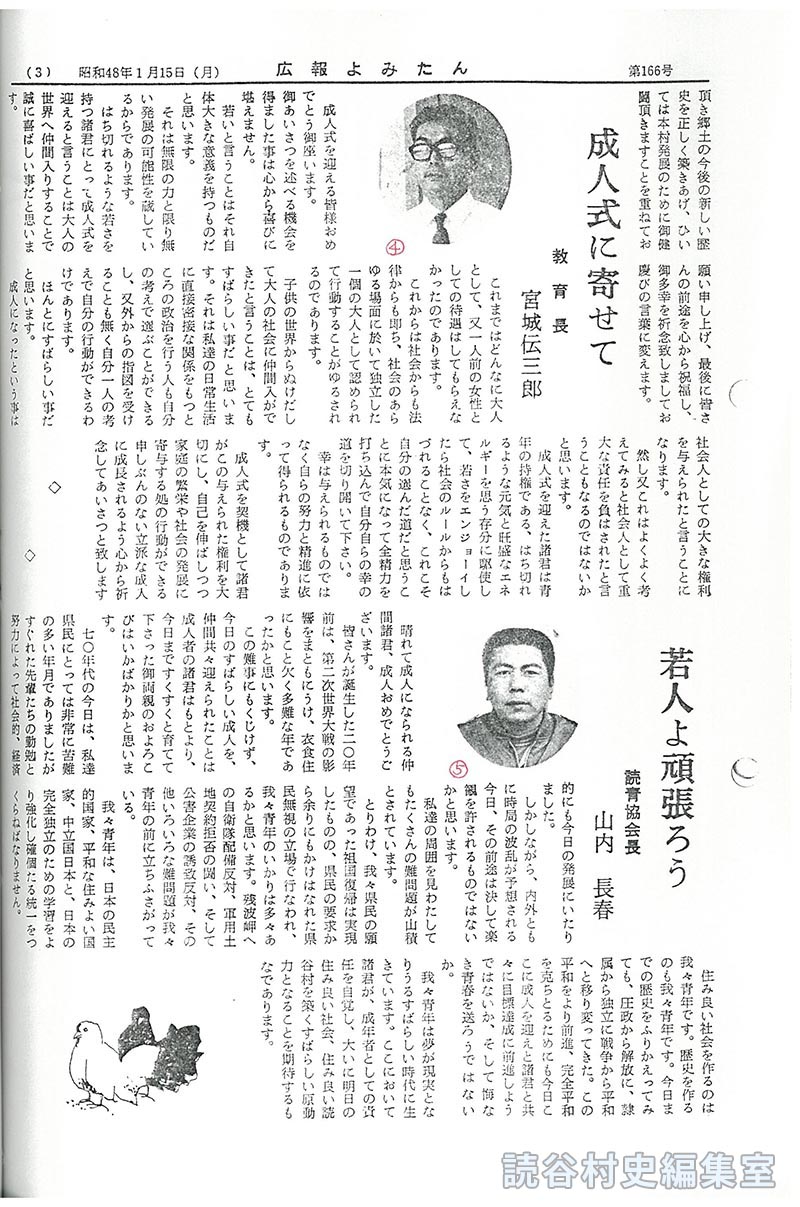 (3)
昭和48年1月15日(月)
広報よみたん
第166号
頂き郷土の今後の新しい歴
史を正しく築きあげ、ひい
ては本村発展のために御健
闘頂きますことを重ねてお
願い申し上げ、最後に皆さ
んの前途を心から祝福し、
御多幸を祈念致しましてお
慶びの言葉に変えます。
成人式に寄せて
教育長
宮城伝三郎
④
成人式を迎える皆様おめ
でとう御座います。
御あいさつを述べる機会を
得ました事は心から喜びに
堪えません。
若いと言うことはそれ自
体大きな意義を持つものだ
と思います。
それは無限の力と限り無
い発展の可能性を蔵してい
るからであります。
はち切れるような若さを
持つ諸君にとって成人式を
迎えると言うことは大人の
世界へ仲間入りすることで
誠に喜ばしい事だと思いま
す。
これまではどんなに大人
として、又一人前の女性と
しての待遇はしてもらえな
かったのであります。
これからは社会からも法
律からも即ち、社会のあら
ゆる場面に於いて独立した
一個の大人として認められ
て行動することがゆるされ
るのであります。
子供の世界からぬけだし
て大人の社会に仲間入がで
きたと言うことは、とても
すばらしい事だと思いま
す。それは私達の日常生活
に直接密接な関係をもつと
ころの政治を行う人も自分
の考えで選ぶことができる
し、又外からの指図を受け
ることも無く自分一人の考
えで自分の行動ができるわ
けであります。
ほんとにすばらしい事だ
と思います。
成人になったという事は
社会人としての大きな権利
を与えられたと言うことに
なります。
然し又これはよくよく考
えてみると社会人として重
大な責任を負はされたと言
うこともなるのではないか
と思います。
成人式を迎えた諸君は青
年の持権である、はち切れ
るような元気と旺盛なエネ
ルギーを思う存分に駆使し
て、若さをエンジョーイし
たら社会のルールからもは
づれることなく、これこそ
自分の選んだ道だと思うこ
とに本気になって全精力を
打ち込んで自分自らの幸の
道を切り開いて下さい。
幸は与えられるものでは
なく自らの努力と精進に依
って得られるものでありま
す。
成人式を契機として諸君
がこの与えられた権利を大
切にし、自己を伸ばしつつ
家庭の繁栄や社会の発展に
寄与する処の行動ができる
申しぶんのない立派な成人
に成長されるよう心から祈
念してあいさつと致します
◇ ◇
若人よ頑張ろう
読青協会長
山内 長春
⑤
晴れて成人になられる仲
間諸君、成人おめでとうご
ざいます。
皆さんが誕生した二〇年
前は、第二次世界大戦の影
響をまともにうけ、衣食住
にもこと欠く多難な年であ
ったかと思います。
この難事にもくじけず、
今日のすばらしい成人を、
仲間共々迎えられたことは
成人者の諸君はもとより、
今日まですくすくと育てて
下さった御両親のおよろこ
びはいかばかりかと思いま
す。
七〇年代の今日は、私達
県民にとっては非常に苦難
の多い年月でありましたが
すぐれた先輩たちの勤勉と
努力によって社会的、経済
的にも今日の発展にいたり
ました。
しかしながら、内外とも
に時局の波乱が予想される
今日、その前途は決して楽
観を許されるものではない
かと思います。
私達の周囲を見わたして
もたくさんの難問題が山積
とされています。
とりわけ、我々県民の願
望であった祖国復帰は実現
したものの、県民の要求か
ら余りにもかけはなれた県
民無視の立場で行なわれ、
我々青年のいかりは多々あ
るかと思います。残波岬へ
の自衛隊配備反対、軍用土
地契約拒否の闘い、そして
公害企業の誘致反対、その
他いろいろな難問題が我々
青年の前に立ちふさがって
いる。
我々青年は、日本の民主
的国家、平和な住みよい国
家、中立国日本と、日本の
完全独立のための学習をよ
り強化し確個たる統一をつ
くらねばなりません。
住み良い社会を作るのは
我々青年です。歴史を作る
のも我々青年です。今日ま
での歴史をふりかえってみ
ても、圧政から解放に、隷
属から独立に戦争から平和
へと移り変ってきた。この
平和をより前進、完全平和
を克ちとるためにも今日こ
こに成人を迎えと諸君と共
々に目標達成に前進しよう
ではないか、そして悔な
き青春を送ろうではない
か。
我々青年は夢が現実とな
りうるすばらしい時代に生
きています。ここにおいて
諸君が、成年者としての責
任を自覚し、大いに明日の
住み良い社会、住み良い読
谷村を築くすばらしい原動
力となることを期待するも
なであります。
読谷村史編集室